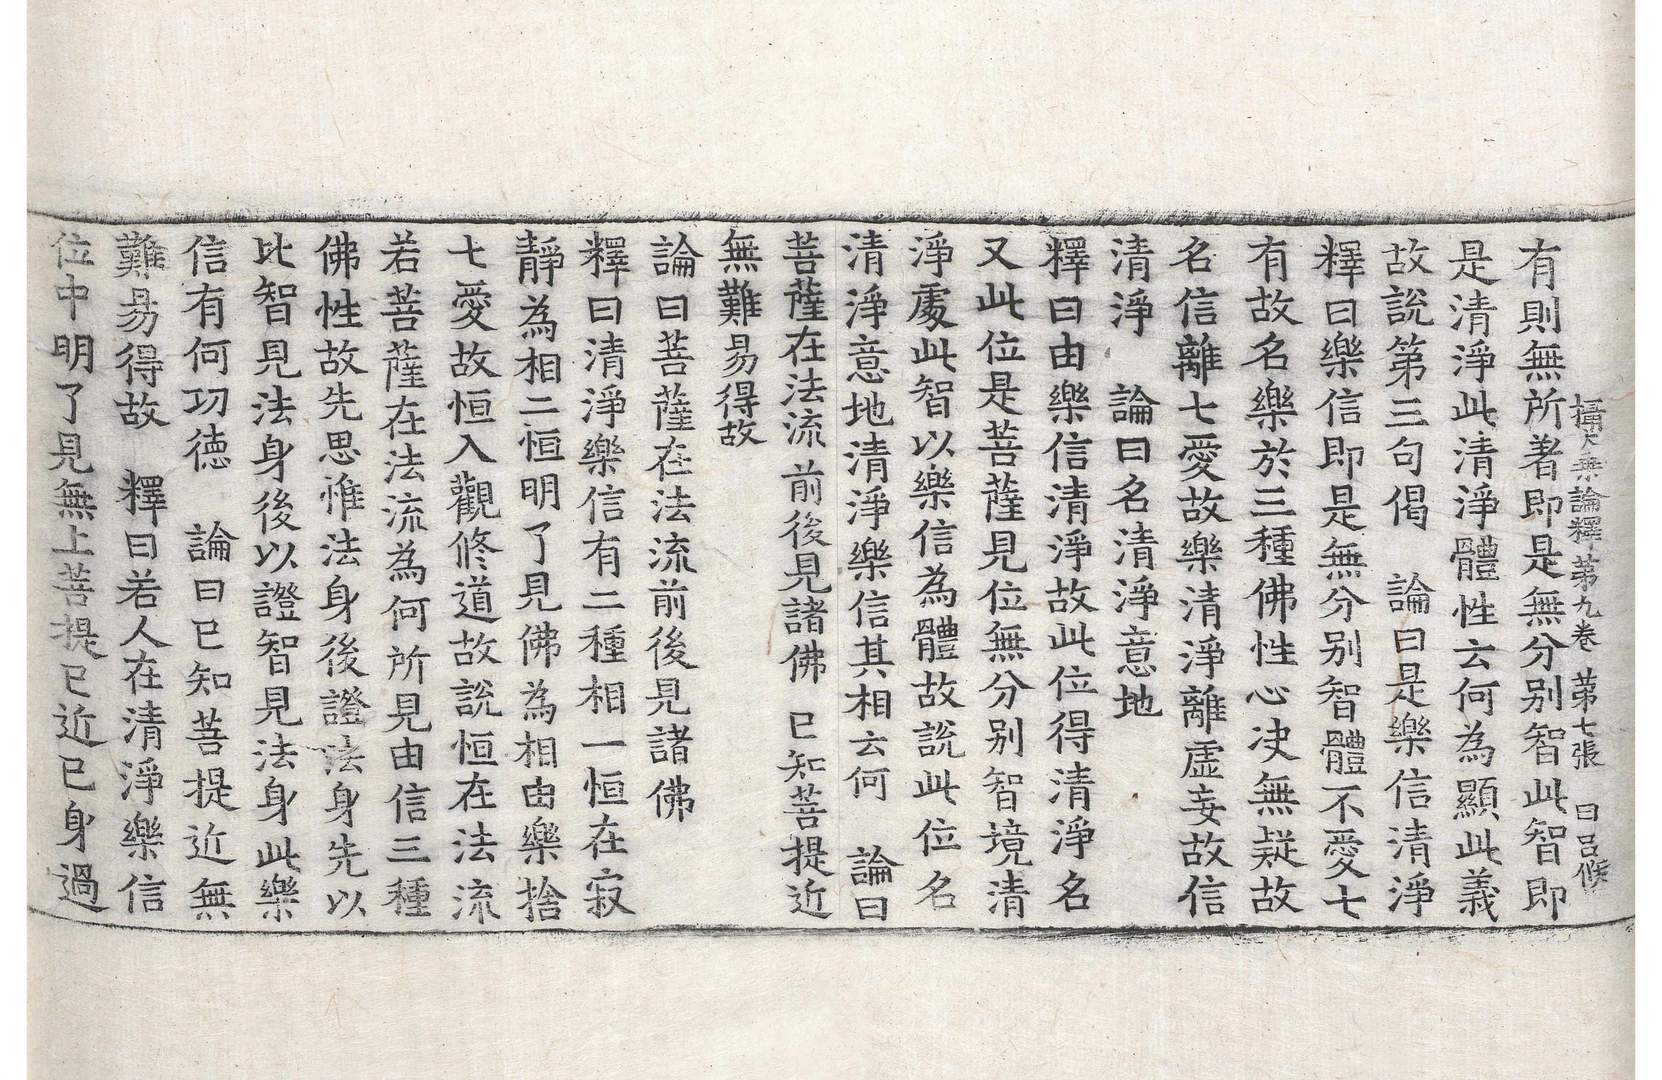 攝大乘論釋第九卷 第七張 日吕候
有則無所著即是無分别智此智即
是清淨此清淨體性云何為顯此義
故說第三句偈 論曰是樂信清淨
釋曰樂信即是無分别智體不愛七
有故名樂於三種佛性心决無疑故
名信離七愛故樂清淨離虚妄故信
清淨 論曰名清淨意地
釋曰由樂信清淨故此位得清淨名
又此位是菩薩見位無分别智境清
淨處此智以樂信為體故說此位名
清淨意地清淨樂信其相云何 論曰
菩薩在法流前後見諸佛 已知菩提近
無難易得故
論曰菩薩在法流前後見諸佛
釋曰清淨樂信有二種相一恒在寂
靜為相二恒明了見佛為相由樂捨
七愛故恒入觀修道故說恒在法流
若菩薩在法流為何所見由信三種
佛性故先思惟法身後證法身先以
比智見法身後以證智見法身此樂
信有何功德 論曰已知菩提近無
難易得故 釋曰若人在清淨樂信
位中明了見無上菩提已近已身過